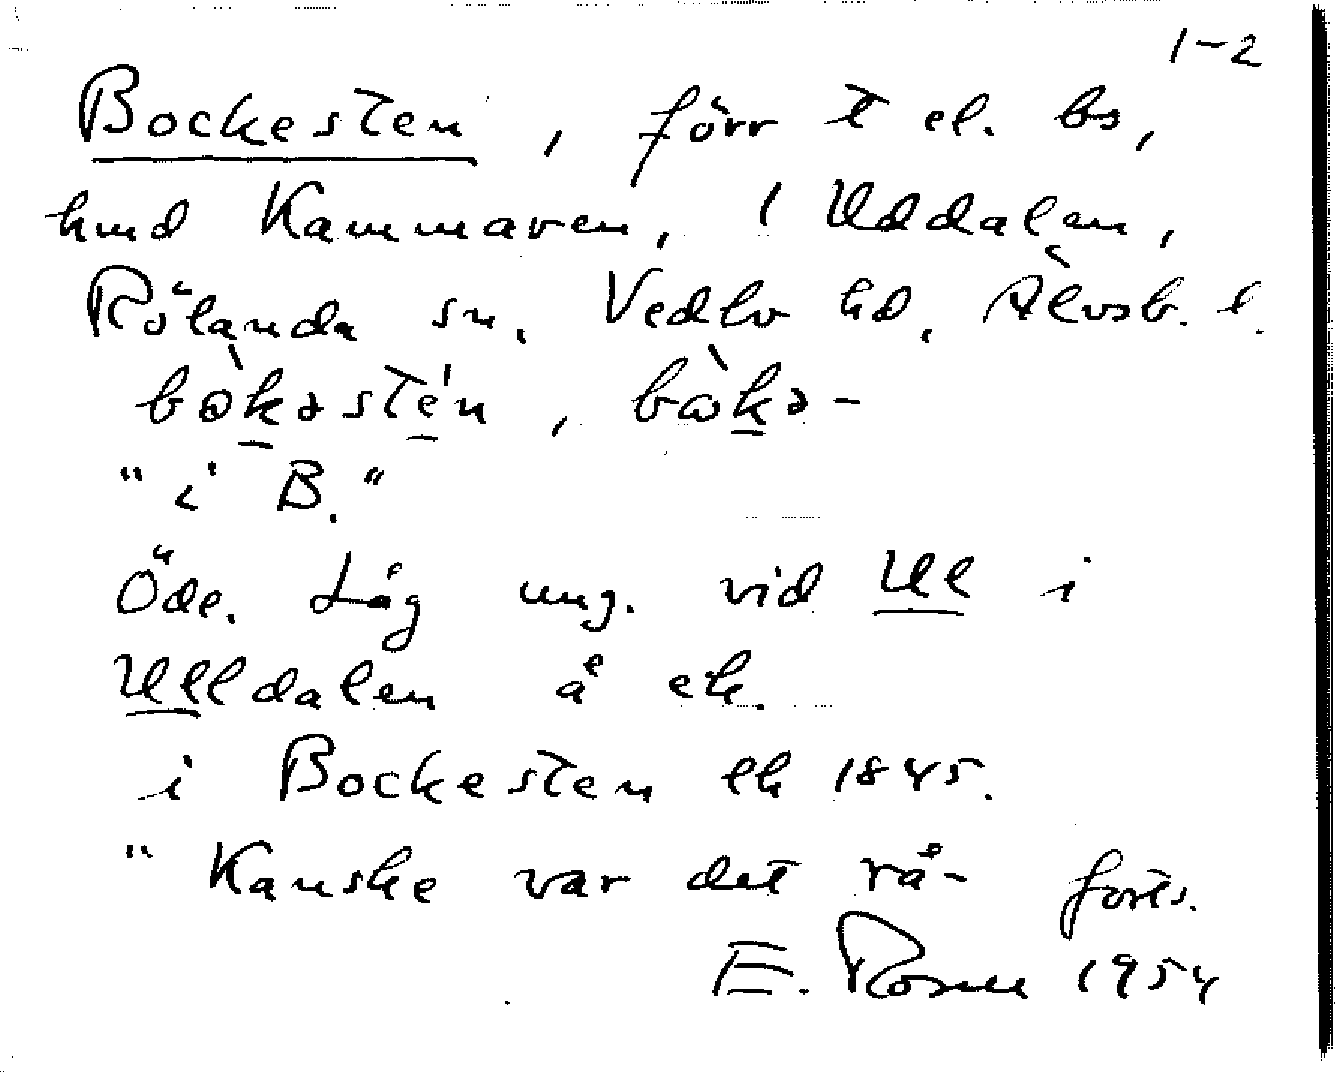 1-2
Bockesten, förr t el. bs,
hmd Kammaren, i Uddalen,
Rölanda sn. Vedbo hd. Älvsb. l.
bòkəsté̱n, bòkə-
"i B."
Öde. Låg ung. vid Ull i
Ulldalen å ek.
i Bockesten lk 1845.
"Kanske var det rå- forts.
E. Rosell 1954